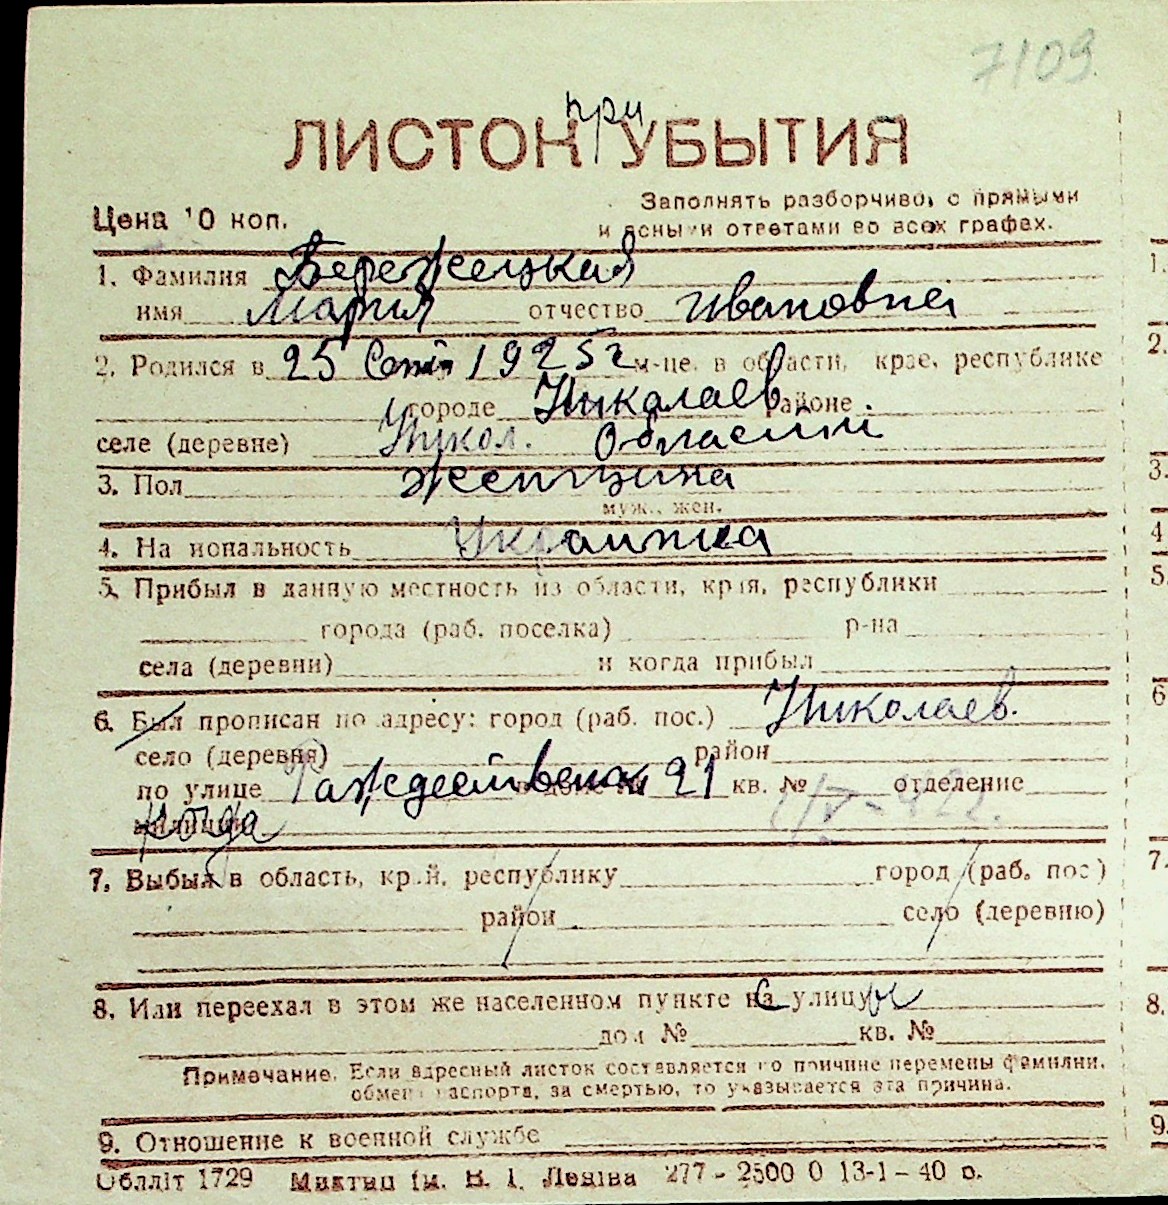 7109
при
ЛИСТОК УБЫТИЯ
Цена 10 коп.
Заполнять разборчиво, с прямыми
и ясными ответами во всех графах.
1. Фамилия Бережецкая
имя Мария отчество Ивановна
2. Родился в 25 Сент. 1925 г м-це, в области, крае, республике
городе Николаев районе
селе (деревне) Никол. Области
3. Пол Женщина
муж., жен.
4. Национальность Украинка
5. Прибыл в данную местность из области, края, республики
города (раб. поселка) р-на
села (деревни) и когда прибыл
6. Был прописан по адресу: город (раб. пос.) Николаев.
село (деревня) район
по улице Рождественск 21 кв. № отделение
когда
7. Выбыл в область, край, республику город (раб. пос)
район село (деревню)
8. Или переехал в этом же населенном пункте с улицы
дом № кв. №
Примечание. Если адресный листок составляется по причине перемены фамилии,
обмена паспорта, за смертью, то указывается эта причина.
9. Отношение к военной службе
Облліт 1729 ім. В. І. Леніна 277 - 2500 0 13-1-40 р.
1.
2.
3.
4
5.
6
7.
8.
9.